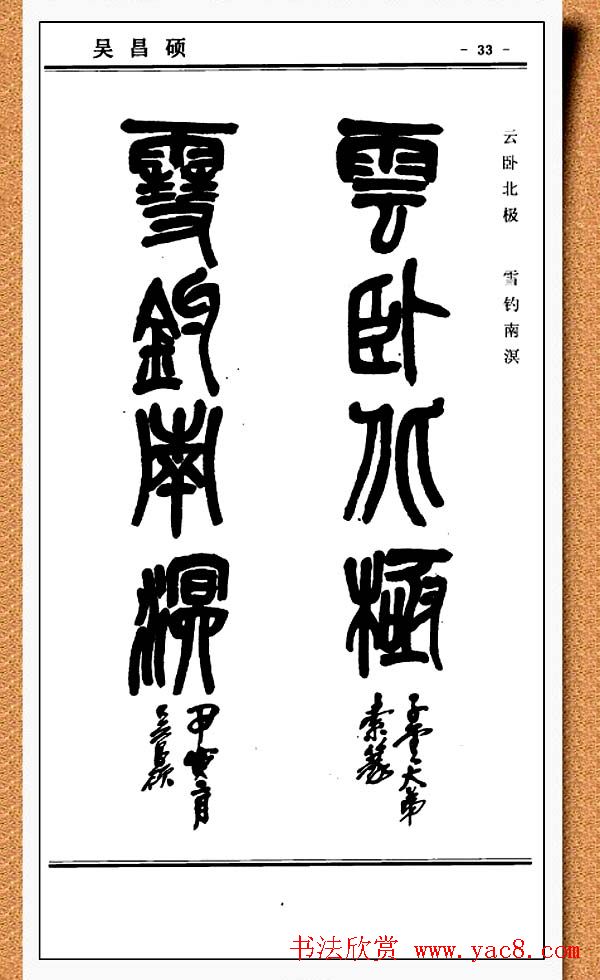 吴昌硕
- 33 -
云卧北极 雪钓南溟
雲臥北極
子雲大弟
索篆
雪釣南溟
甲寅二月
吴昌碩
书法欣赏 www.yac8.com